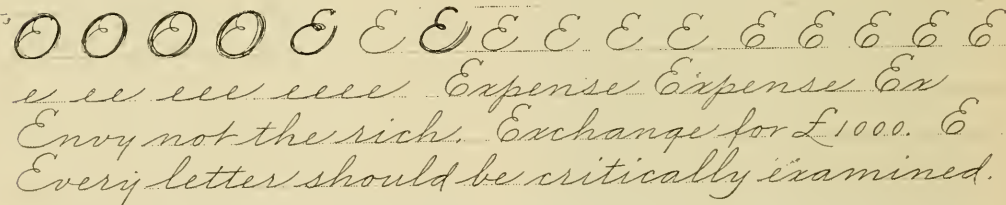 O O O O E E E E E E E E E E E E
e ee eee eeee Expense Expense Ex
Envy not the rich. Exchange for £1000. E
Every letter should be critically examined.